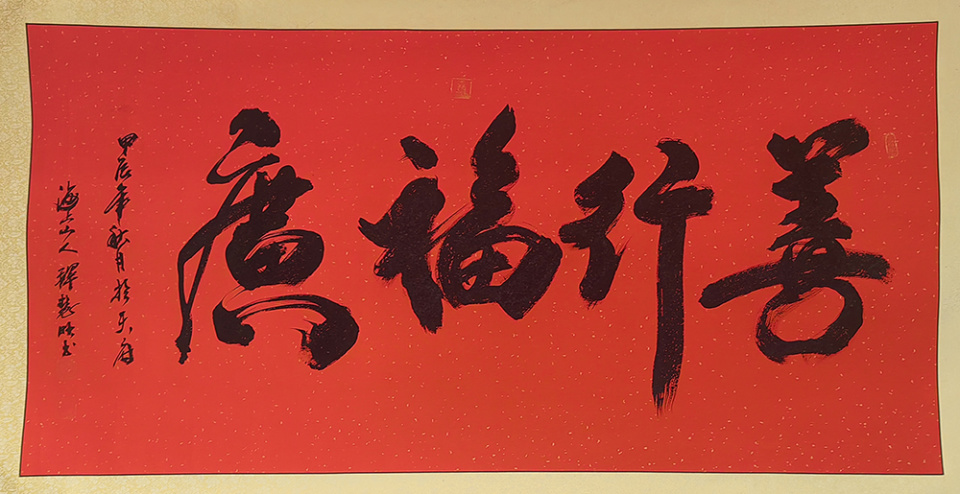 善行福廣
甲辰年秋月於天府
海山人釋慧书